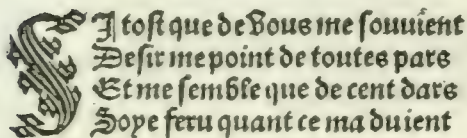 SI tost que de vous me souuient
Desir me point de toutes pars
Et me semble que de cent dars
Soye feru quant ce ma duient